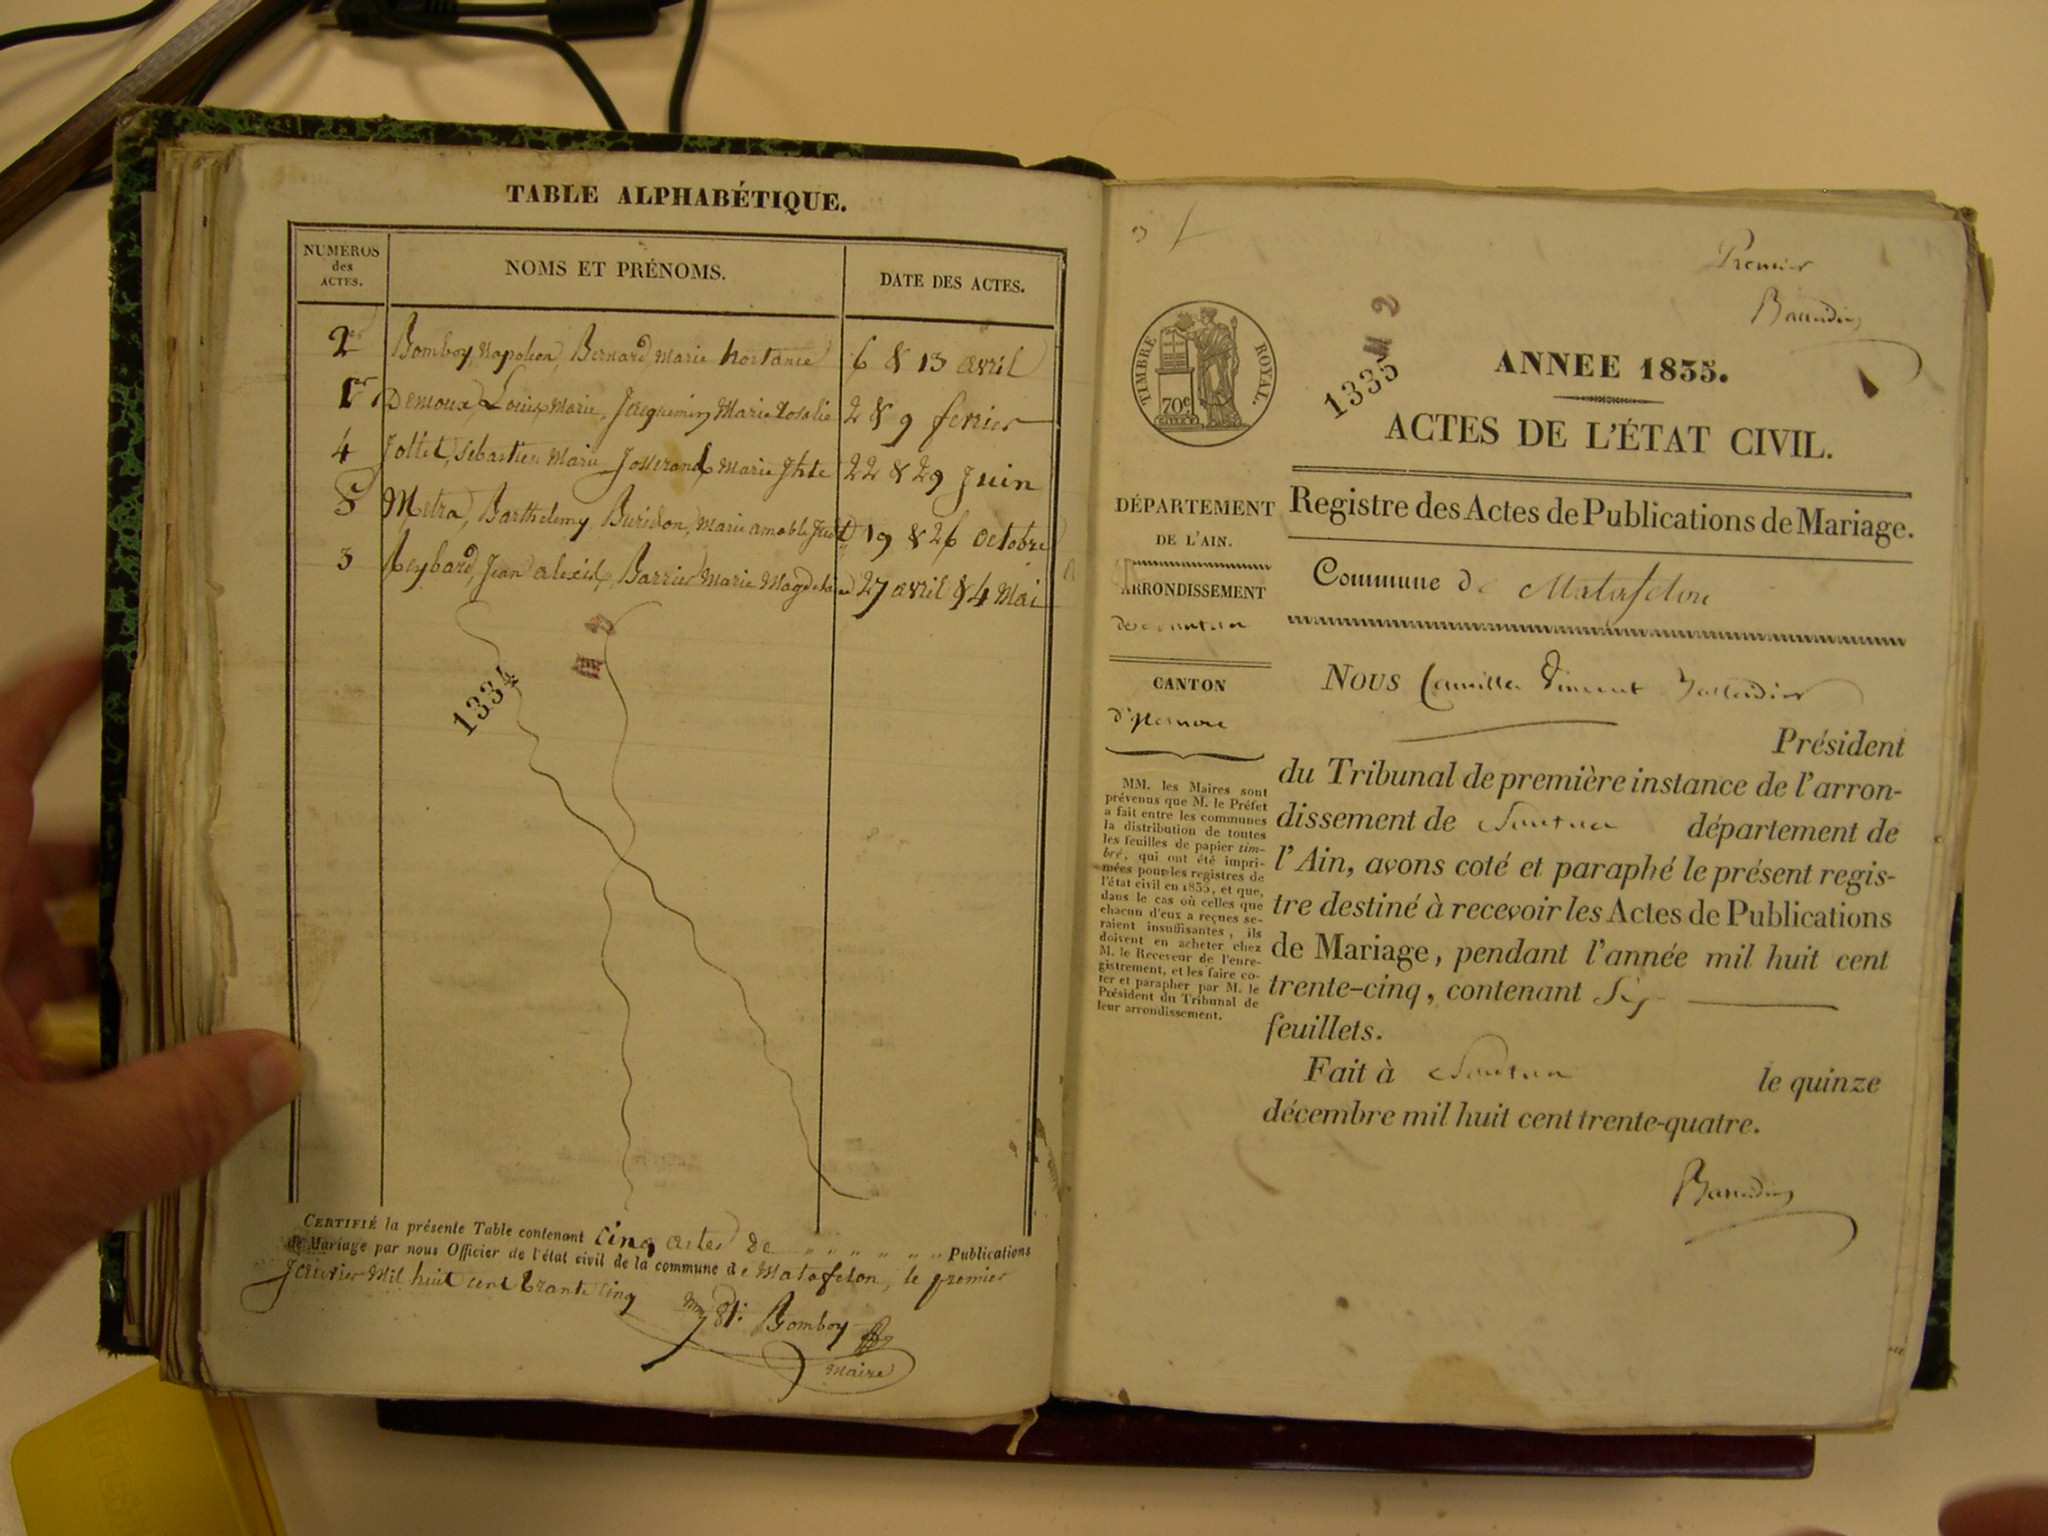 TABLE ALPHABÉTIQUE.
NUMÉROS
des
ACTES.
NOMS ET PRÉNOMS.
DATE DES ACTES.
2 Bomboy, Napoléon, Bernard, Marie hortance 6 & 13 avril
1er Demoux, Louis Marie, Jacquemin, Marie Rosalie 2 & 9 fevrier
4 Jollet, Sébastien Marie, Josserand, Marie 22 & 29 Juin
5 Metra, Barthelemy, Buridon, Marie 19 & 26 octobre
3 Reybard, Jean alexis, Barrier Marie Magdelaine 27 avril & 4 Mai
1334
CERTIFIÉ la présente Table contenant cinq actes de " " " " " " Publications
de Mariage par nous Officier de l'état civil de la commune de Matafelon, le premier
Janvier Mil huit cent trante cinq
Bomboy
Maire
Premier
TIMBRE ROYAL.
70c
1335
M 2
ANNEE 1835.
ACTES DE L'ÉTAT CIVIL.
DÉPARTEMENT
DE L'AIN.
ARRONDISSEMENT
de Nantua
CANTON
d'Izernore
MM. les Maires sont
prévenus que M. le Préfet
a fait entre les communes
la distribution de toutes
les feuilles de papier tim-
bré, qui ont été impri-
mées pour les registres de
l'état civil en 1835, et que,
dans le cas où celles que
chacun d'eux a reçues se-
raient insuffisantes, ils
doivent en acheter chez
M. le Receveur de l'enre-
gistrement, et les faire co-
ter et parapher par M. le
Président du Tribunal de
leur arrondissement.
Registre des Actes de Publications de Mariage.
Commune de Matafelon
Nous Camille Vincent
Président
du Tribunal de première instance de l'arron-
dissement de Nantua département de
l'Ain, avons coté et paraphé le présent regis-
tre destiné à recevoir les Actes de Publications
de Mariage, pendant l'année mil huit cent
trente-cinq, contenant Six
feuillets.
Fait à Nantua le quinze
décembre mil huit cent trente-quatre.